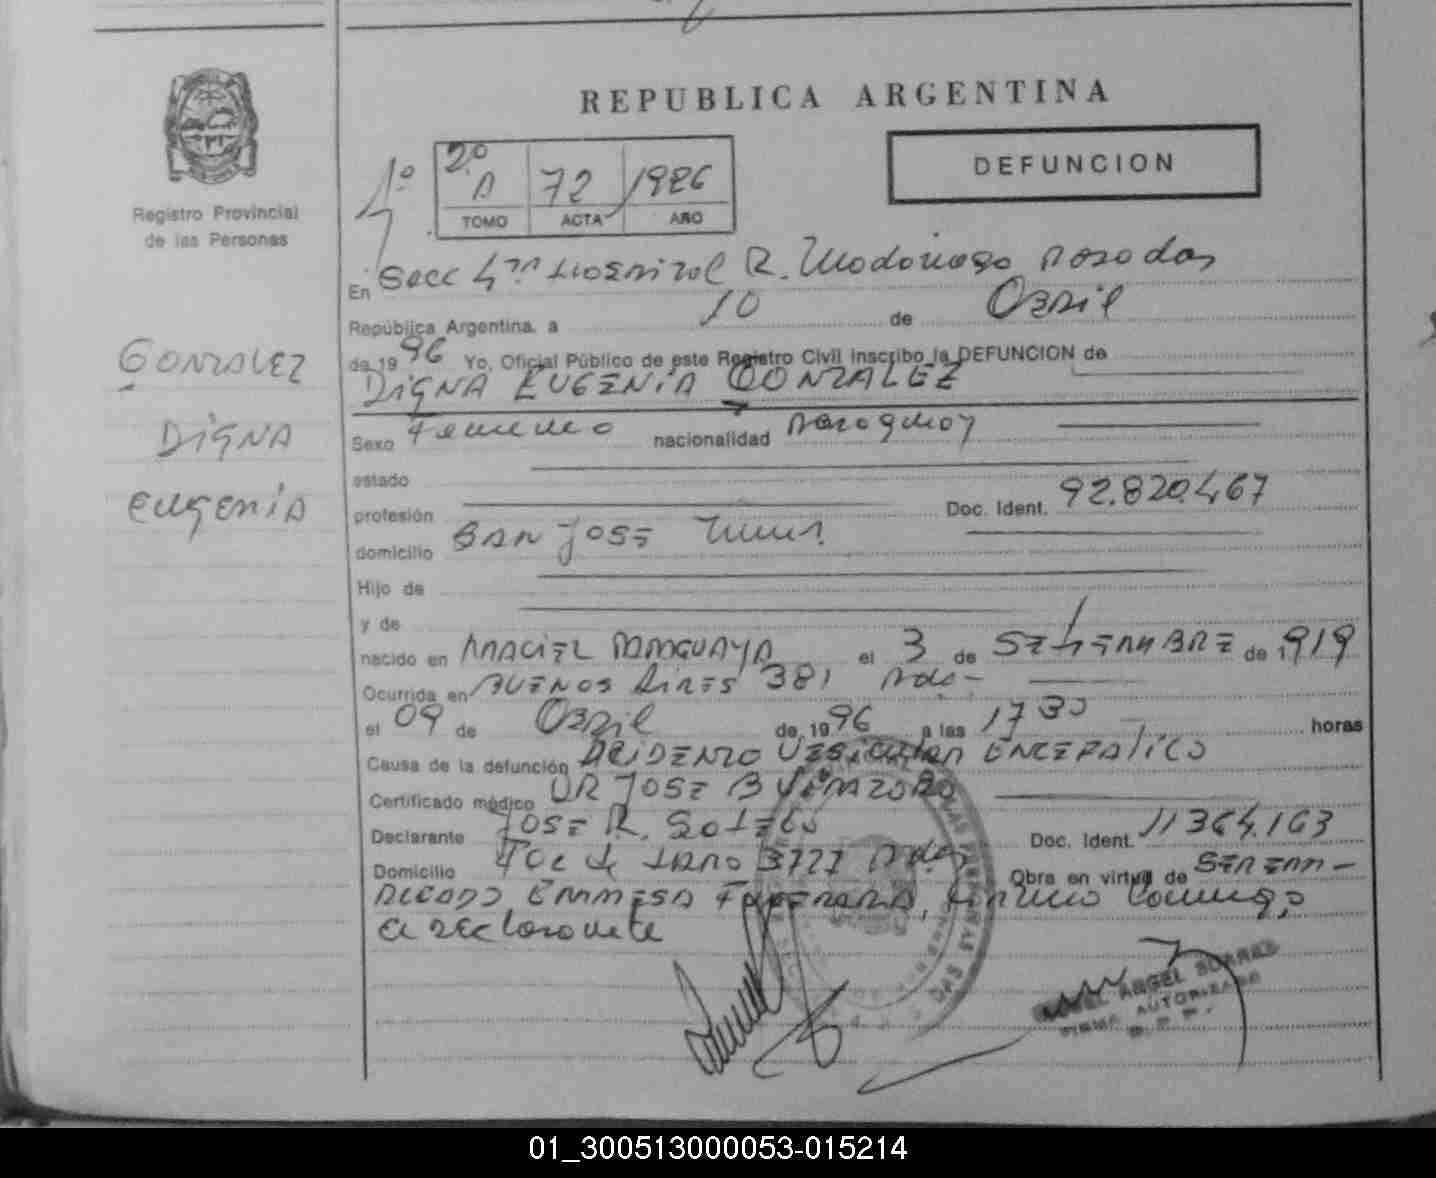 REPUBLICA ARGENTINA
DEFUNCION
4º
2º A 72 1986
TOMO ACTA AÑO
Registro Provincial
de las Personas
En Secc 4ta Hospital R. Madariaga Posadas
República Argentina, a 10 de Abril
de 19 96 Yo, Oficial Público de este Registro Civil inscribo la DEFUNCION de
DIGNA EUGENIA GONZALEZ
GONZALEZ
DIGNA
EUGENIA
Sexo Femenino nacionalidad Paraguay
estado
profesión Doc. Ident. 92.820.467
domicilio SAN JOSE
Hijo de
y de
nacido en MACIEL PARAGUAYA el 3 de SETIEMBRE de 1919
Ocurrida en BUENOS AIRES 381 Pdas-
el 09 de Abril de 1996 a las 17 30 horas
Causa de la defunción ACIDENTO VESICULAR ENCEFALICO
Certificado médico DR JOSE B
Declarante JOSE R. SOTELO Doc. Ident. 11364.163
Domicilio 3777 Pdas Obra en virtud de SER EM-
PLEADO EMPRESA FUNERARIA, firmando conmigo
el declarante
ANGEL SUAREZ
FIRMA AUTORIZADA
R.P.P.
01_300513000053-015214